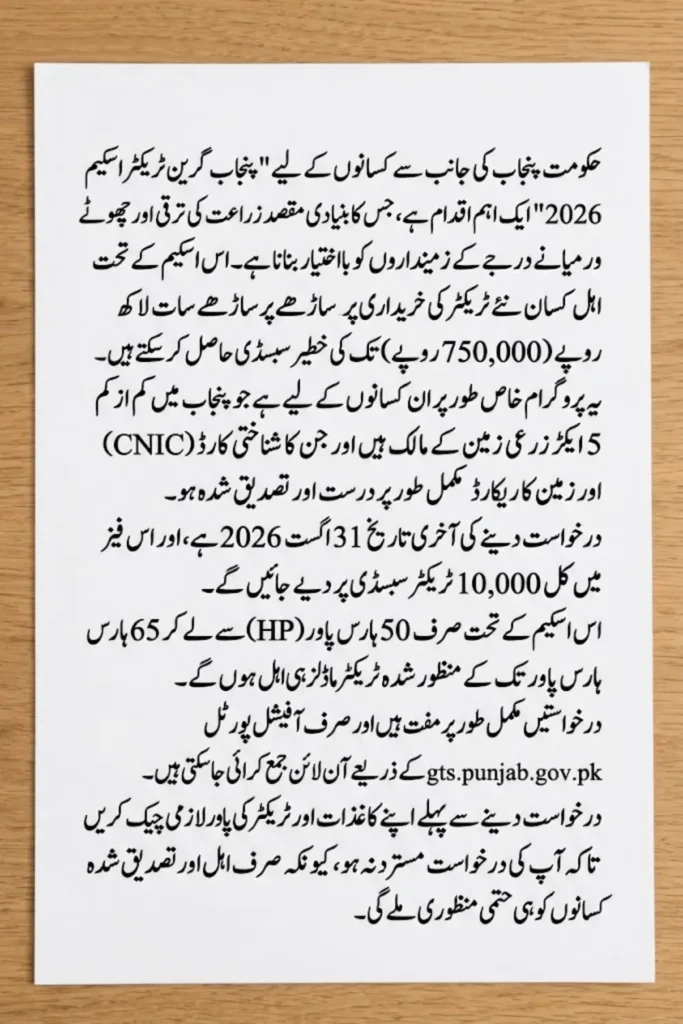 حکومت پنجاب کی جانب سے کسانوں کے لیے "پنجاب گرین ٹریکٹر اسکیم
2026" ایک اہم اقدام ہے، جس کا بنیادی مقصد زراعت کی ترقی اور چھوٹے
ورمیانے درجے کے زمینداروں کو بااختیار بنانا ہے۔ اس اسکیم کے تحت
اہل کسان نئے ٹریکٹر کی خریداری پر ساڑھے پر ساڑھے سات لاکھ
روپے (750,000 روپے) تک کی خطیر سبسڈی حاصل کر سکتے ہیں۔
یہ پروگرام خاص طور پر ان کسانوں کے لیے ہے جو پنجاب میں کم از کم
5 ایکڑ زرعی زمین کے مالک ہیں اور جن کا شناختی کارڈ (CNIC)
اور زمین کا ریکارڈ مکمل طور پر درست اور تصدیق شدہ ہو۔
درخواست دینے کی آخری تاریخ 31 اگست 2026 ہے، اور اس فیز
میں کل 10,000 ٹریکٹر سبسڈی پر دیے جائیں گے۔
اس اسکیم کے تحت صرف 50 ہارس پاور (HP) سے لے کر 65 ہارس
ہارس پاور تک کے منظور شدہ ٹریکٹر ماڈلز ہی اہل ہوں گے۔
درخواستیں مکمل طور پر مفت ہیں اور صرف آفیشل پورٹل
gts.punjab.gov.pk کے ذریعے آن لائن جمع کرائی جا سکتی ہیں۔
درخواست دینے سے پہلے اپنے کاغذات اور ٹریکٹر کی پاور لازمی چیک کریں
تاکہ آپ کی درخواست مسترد نہ ہو، کیونکہ صرف اہل اور تصدیق شدہ
کسانوں کو ہی حتمی منظوری ملے گی۔